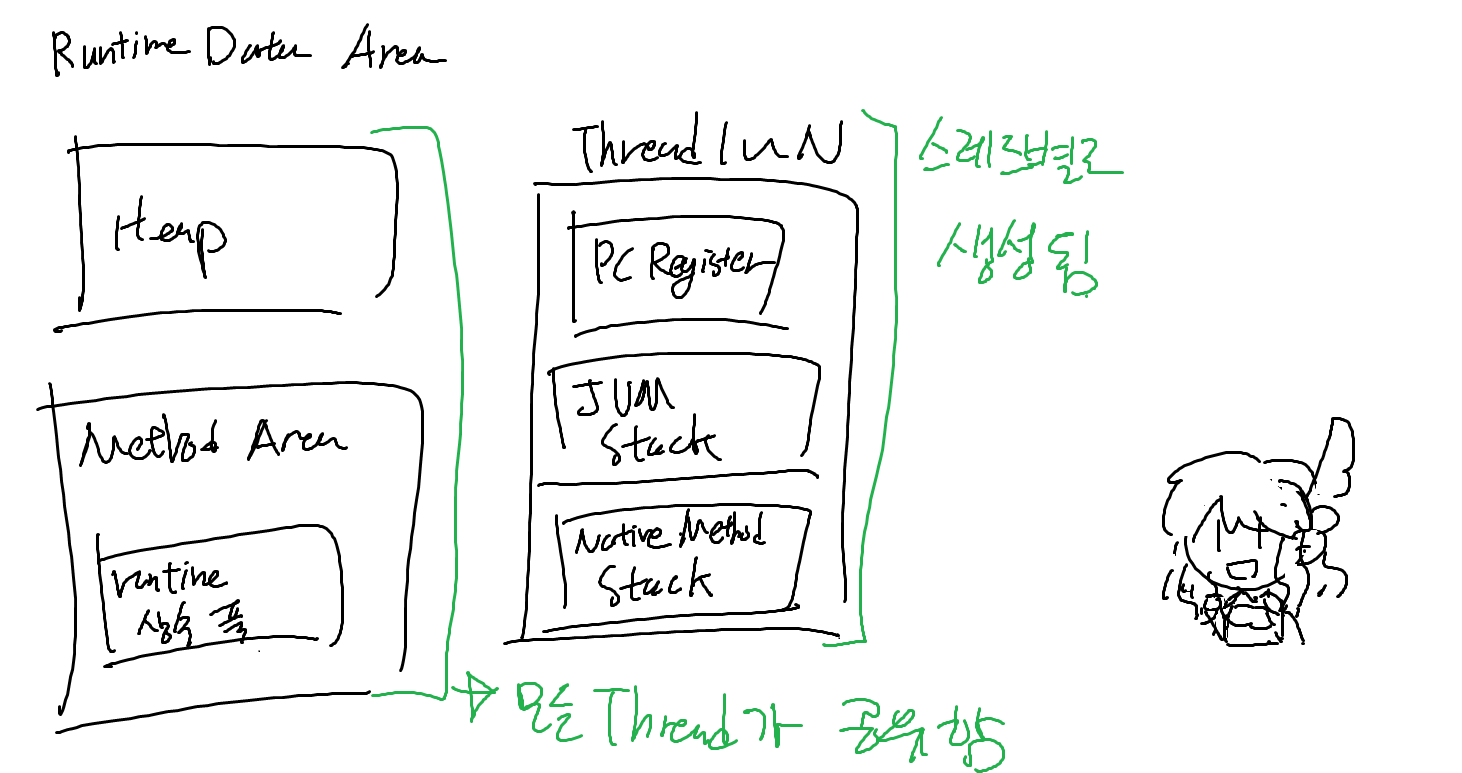 Runtime Data Area
Heap
Method Area
runtime
상수 풀
Thread 1 ~ N
PC Register
JVM
Stack
Native Method
Stack
스레드별로
생성됨
모든 Thread가 공유함